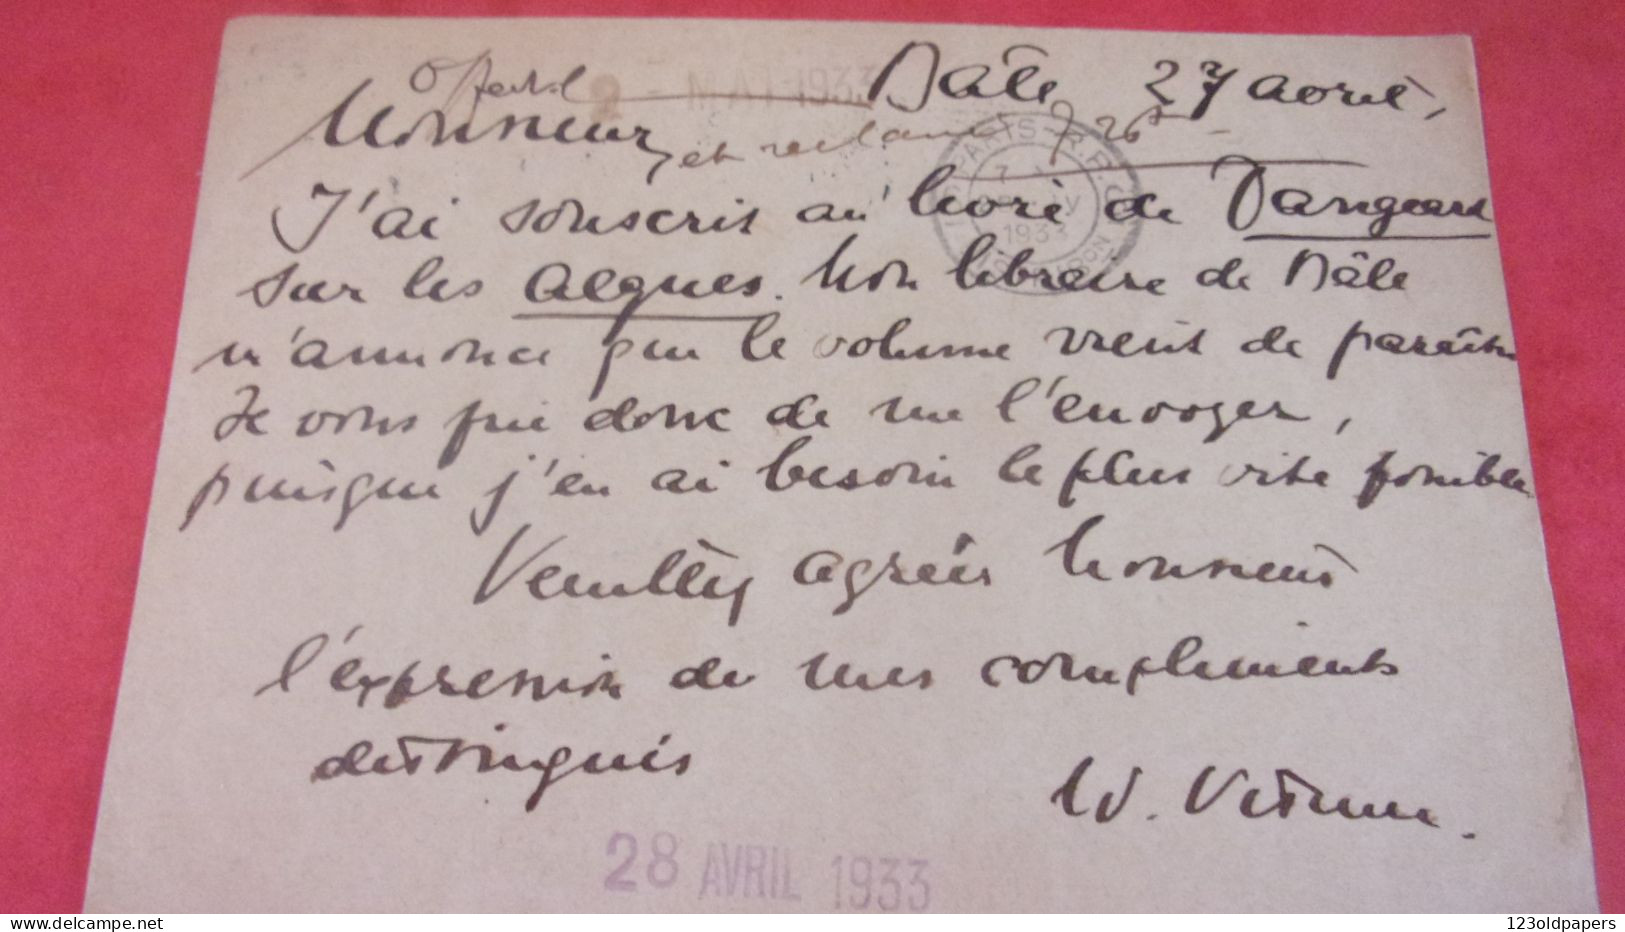 Bâle 27 avril,
2 - MAI 1933
Monsieur,
et reclamé 26
PARIS R.P.
1933
J'ai souscris au livre de Dangeard
sur les Algues. Mon libraire de Bâle
m'annonce que le volume vient de paraître
Je vous prie donc de me l'envoyer,
puisque j'en ai besoin le plus vite possible.
Veuillez agréer Monsieur
l'expression de mes compliments
distingués
W. Vischer.
28 AVRIL 1933
123oldpapers